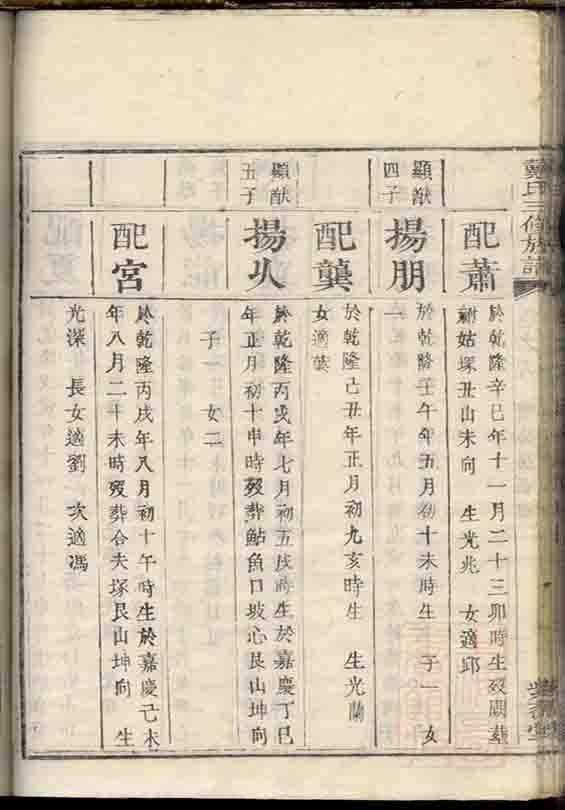 戴氏三修族譜
配蕭
於乾隆辛巳年十一月二十三卯時生歿闕葬
祔姑塚丑山未向 生光兆 女適邱
顯猷
四子
揚朋
於乾隆壬午年五月初十未時生 子一 女
一
配龔
於乾隆己丑年正月初九亥時生 生光蘭
女適葉
顯猷
五子
揚㲽
於乾隆丙戌年七月初五戌時生於嘉慶丁巳
年正月初十申時歿葬鮎魚口坡心艮山坤向
子一 女二
配宮
於乾隆丙戌年八月初十午時生於嘉慶己未
年八月二十未時歿葬合夫塚艮山坤向 生
光深 長女適劉 次適馮